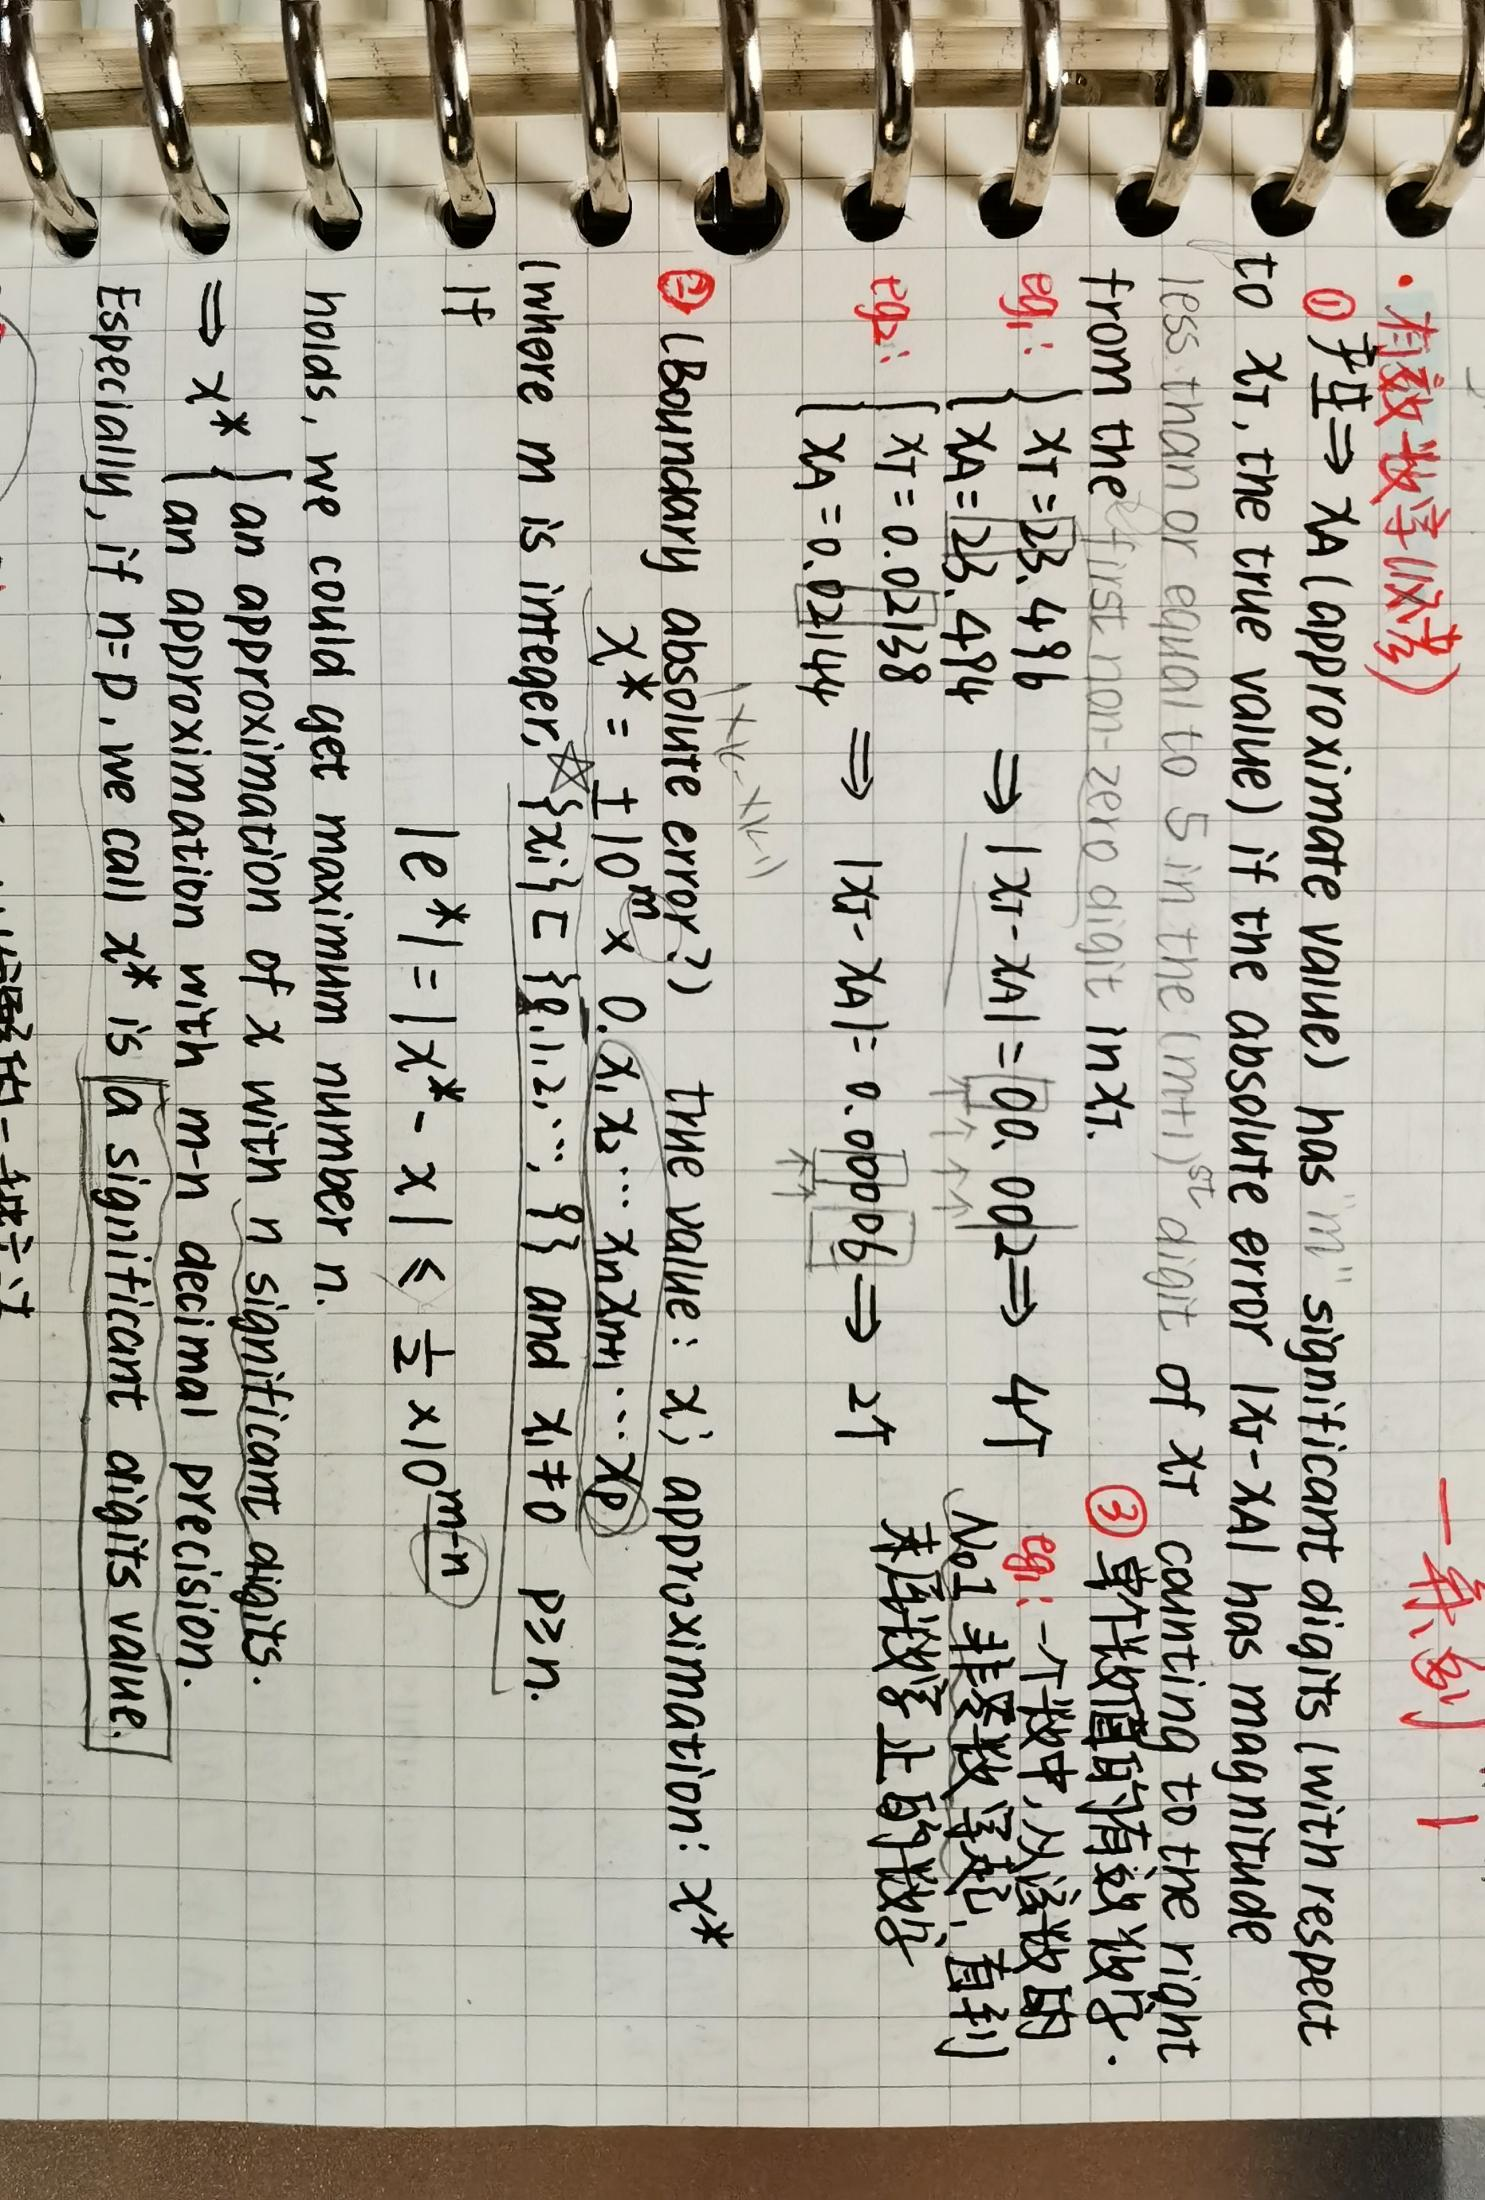 · 有效数字 (必考)
① 产生 ⇒ xA (approximate value) has "m" significant digits (with respect
to xT, the true value) if the absolute error |xT - xA| has magnitude
less than or equal to 5 in the (m+1)st digit of xT counting to the right
from the first non-zero digit in xT.
eg1: { xT = 23.496
{ xA = 23.494 ⇒ |xT - xA| = 00.002 ⇒ 4个
eg2: { xT = 0.02138
{ xA = 0.02144 ⇒ |xT - xA| = 0.00006 ⇒ 2个
③ 单个数值的有效数字.
eg1: 一个数中,从该数的
No.1 非零数字起,直到
末尾数字止的数字
|xk - xk-1|
② (Boundary absolute error?) true value: x; approximation: x*
x* = ± 10^m × 0.x1x2...xnxn+1...xp
(where m is integer, ☆{xi} ⊂ {0,1,2,...,9} and x1≠0 p≥n.
If
|e*| = |x* - x| ≤ 1/2 × 10^m-n
holds, we could get maximum number n.
⇒ x* { an approximation of x with n significant digits.
{ an approximation with m-n decimal precision.
Especially, if n=p, we call x* is a significant digits value.